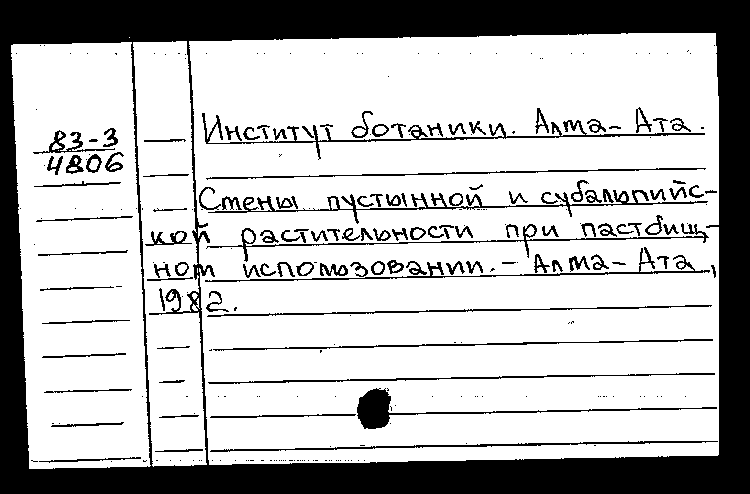 83-3
4806
Институт ботаники. Алма-Ата.
Смены пустынной и субальпийс-
кой растительности при пастбищ-
ном использовании. - Алма-Ата,
1982.